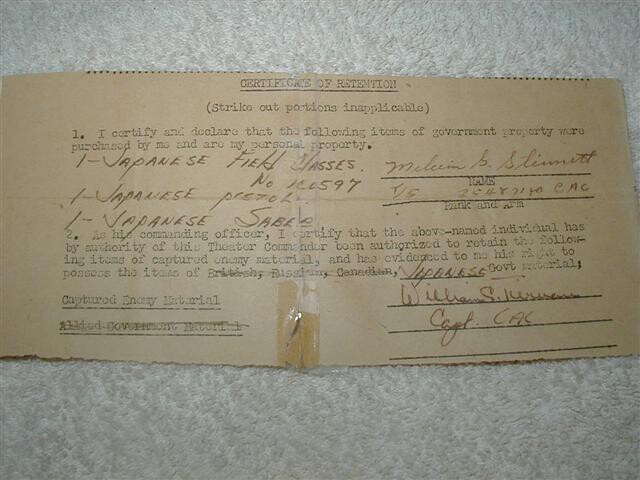 CERTIFICATE OF RETENTION
(Strike out portions inapplicable)
1. I certify and declare that the following items of government property were
purchased by me and are my personal property.
1- JAPANESE FIELD GLASSES. Melvin G. Stinnett
No NAME
1- JAPANESE PISTOL T/5 CAC
Rank and Arm
1- JAPANESE SABER
2. As his commanding officer, I certify that the above-named individual has
by authority of this Theater Commander been authorized to retain the follow-
ing items of captured enemy material, and has evidenced to me his right to
possess the items of British, Russian, Canadian, JAPANESE Govt material;
William S.
Captured Enemy Material
Capt. CAC
Allied Government Material